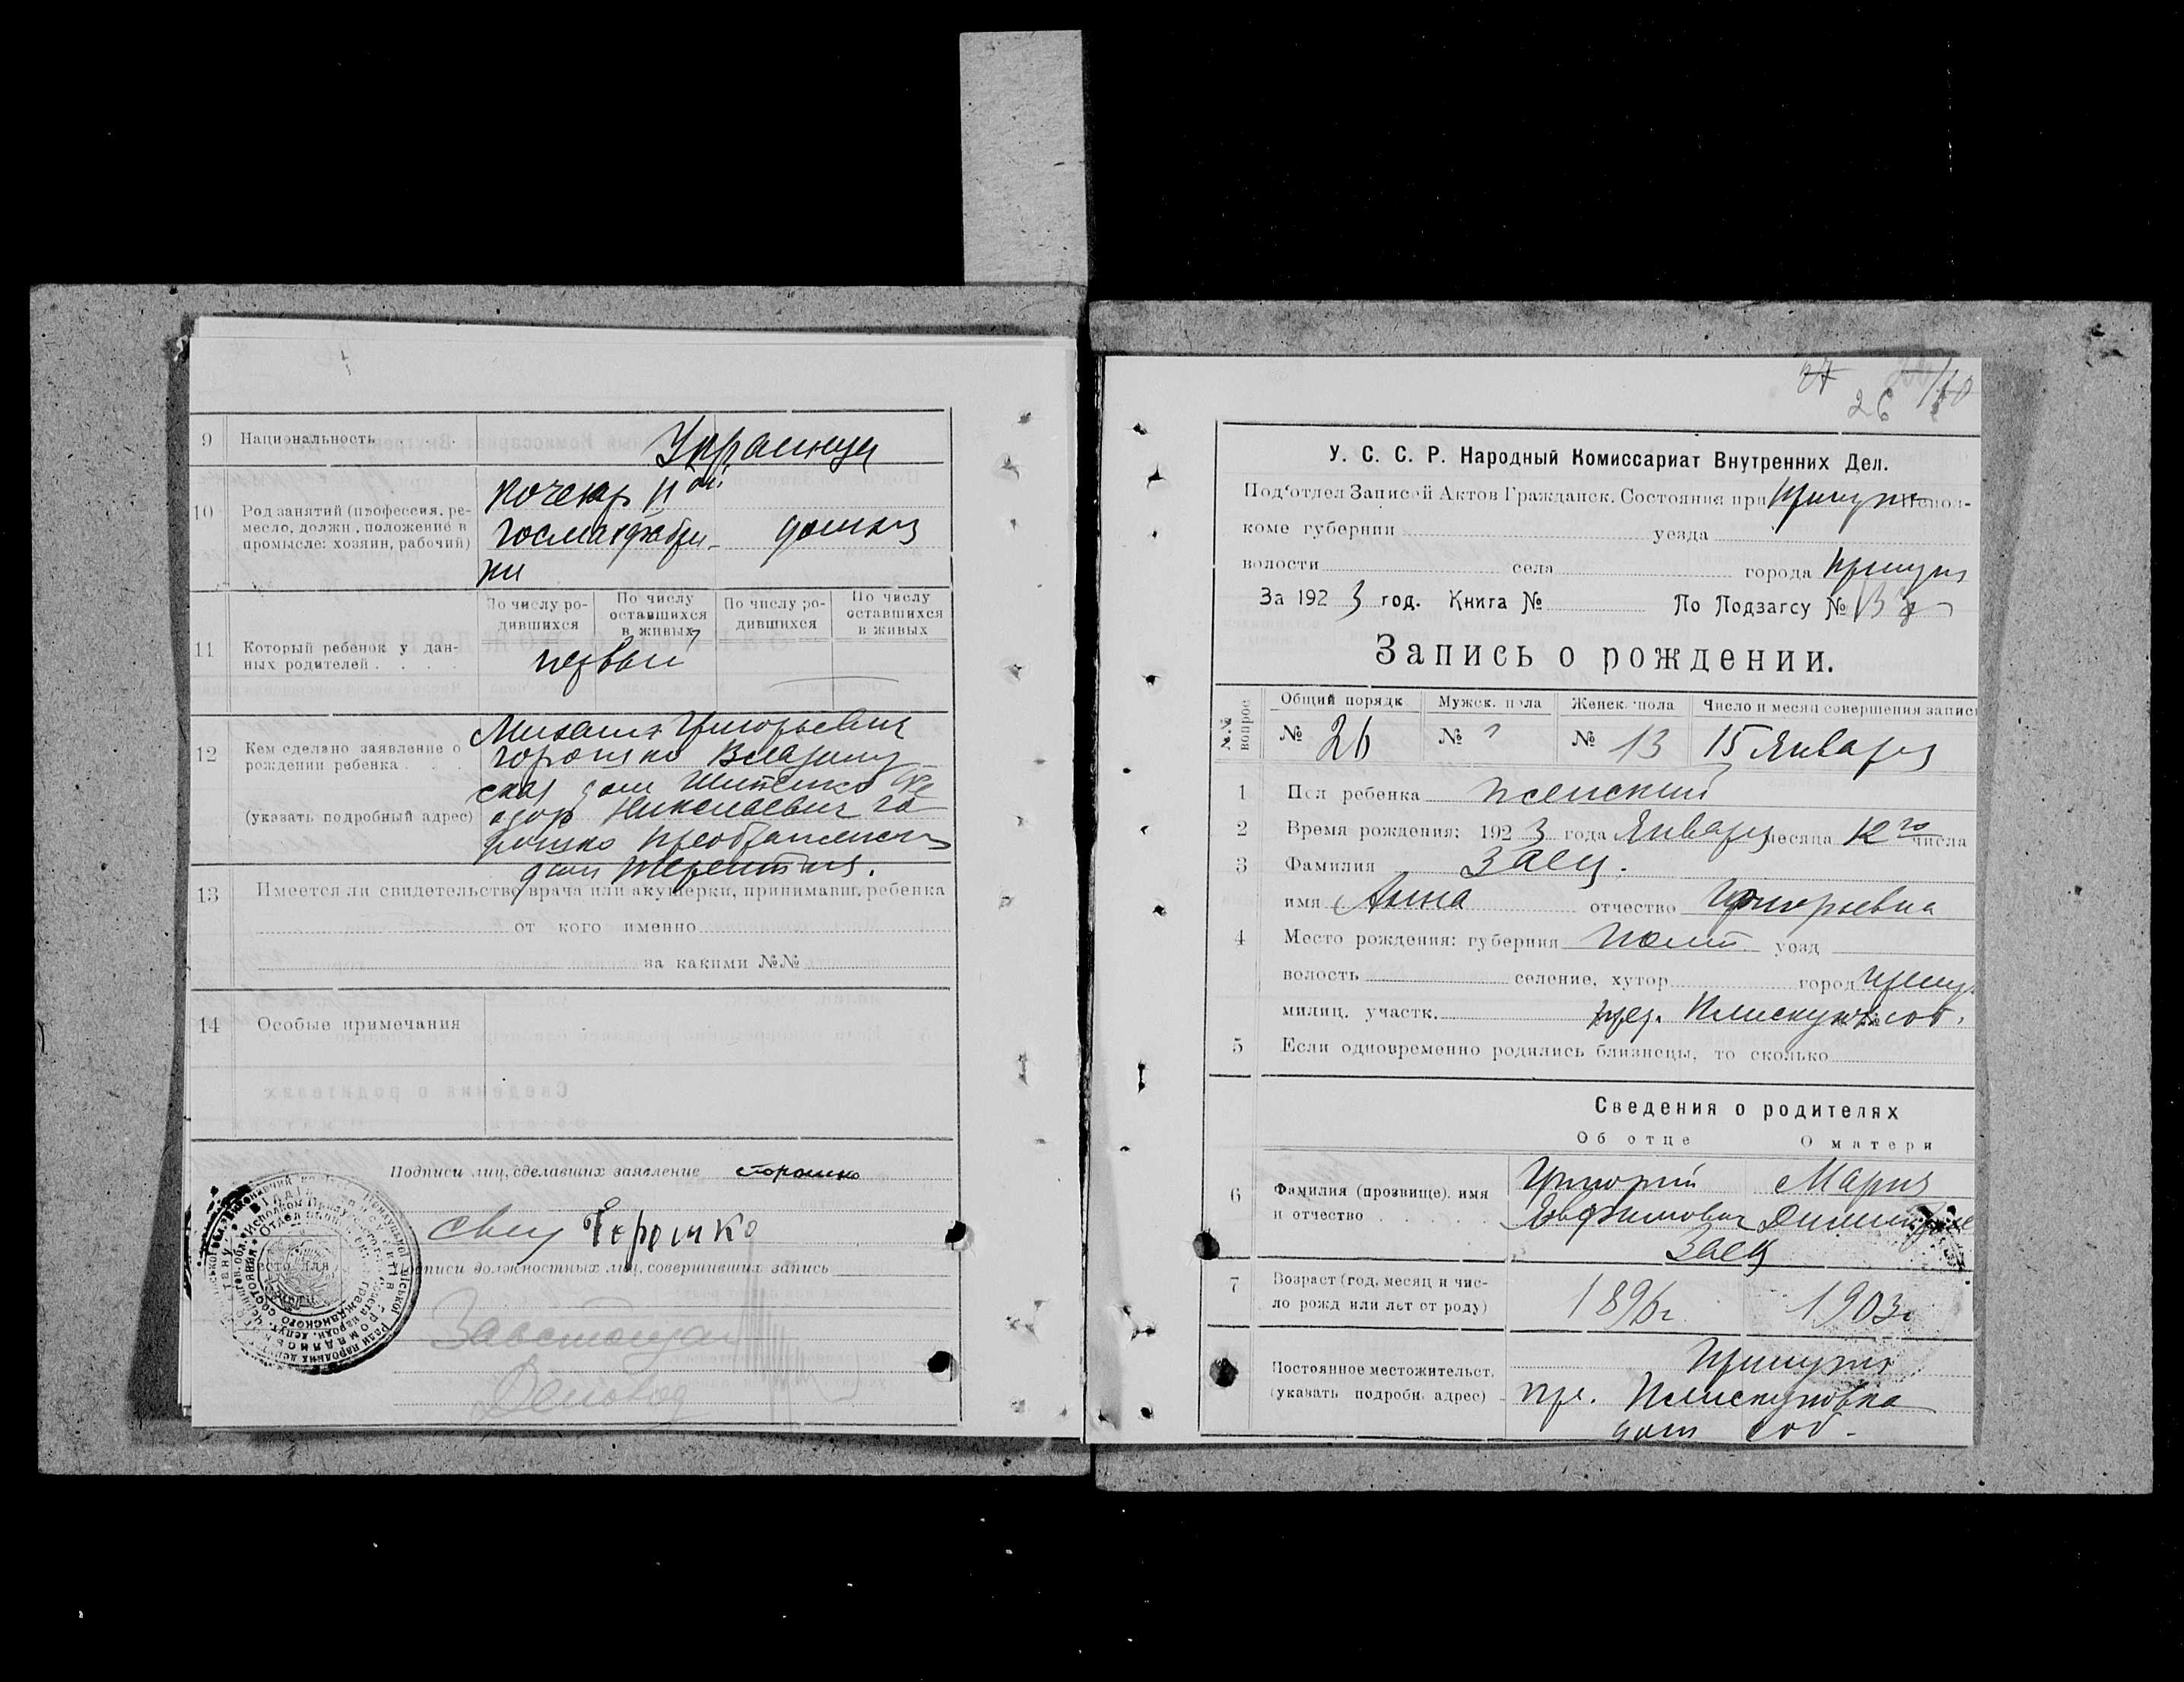 9 Национальность Украинцы
10 Род занятий (профессия, ре-
месло, должн., положение в
промысле: хозяин, рабочий)
кочегар
госмахфабри-
ки
домаш
11 Который ребенок у дан-
ных родителей
По числу ро-
дившихся
По числу
оставшихся
в живых
По числу ро-
дившихся
По числу
оставшихся
в живых
первый
12 Кем сделано заявление о
рождении ребенка
(указать подробный адрес)
Михаил Григорьевич
Горошко
дом Фе
одор Николаевич Го
рошко
дом
13 Имеется ли свидетельство врача или акушерки, принимавш. ребенка
от кого именно
за какими №№
14 Особые примечания
Подписи лиц, сделавших заявление
Горошко
Подписи должностных лиц, совершивших запись
Деловод
26
У. С. С. Р. Народный Комиссариат Внутренних Дел.
Под'отдел Записей Актов Гражданск. Состояния при Прилук Испол-
коме губернии уезда
волости села города Прилуки
За 1923 год. Книга № По Подзагсу №
Запись о рождении.
№№ вопрос
Общий порядк Мужск. пола Женск. пола Число и месяц совершения записи
№ 26 № № 13 15 Января
1 Пол ребенка женский
2 Время рождения: 1923 года Января месяца 12го числа
3 Фамилия Заец.
имя Анна отчество Григорьевна
4 Место рождения: губерния Полт уезд
волость селение, хутор город Прилу
милиц. участк. пред. Плискуновк соб.
5 Если одновременно родились близнецы, то сколько
Сведения о родителях
Об отце О матери
6 Фамилия (прозвище), имя
и отчество
Григорий
Евфимович
Мария
Заец
7 Возраст (год, месяц и чис-
ло рожд или лет от роду)
1896г 1903г
Постоянное местожительст.
(указать подробн. адрес)
Прилуки
пр. Плискуновка
дом соб.